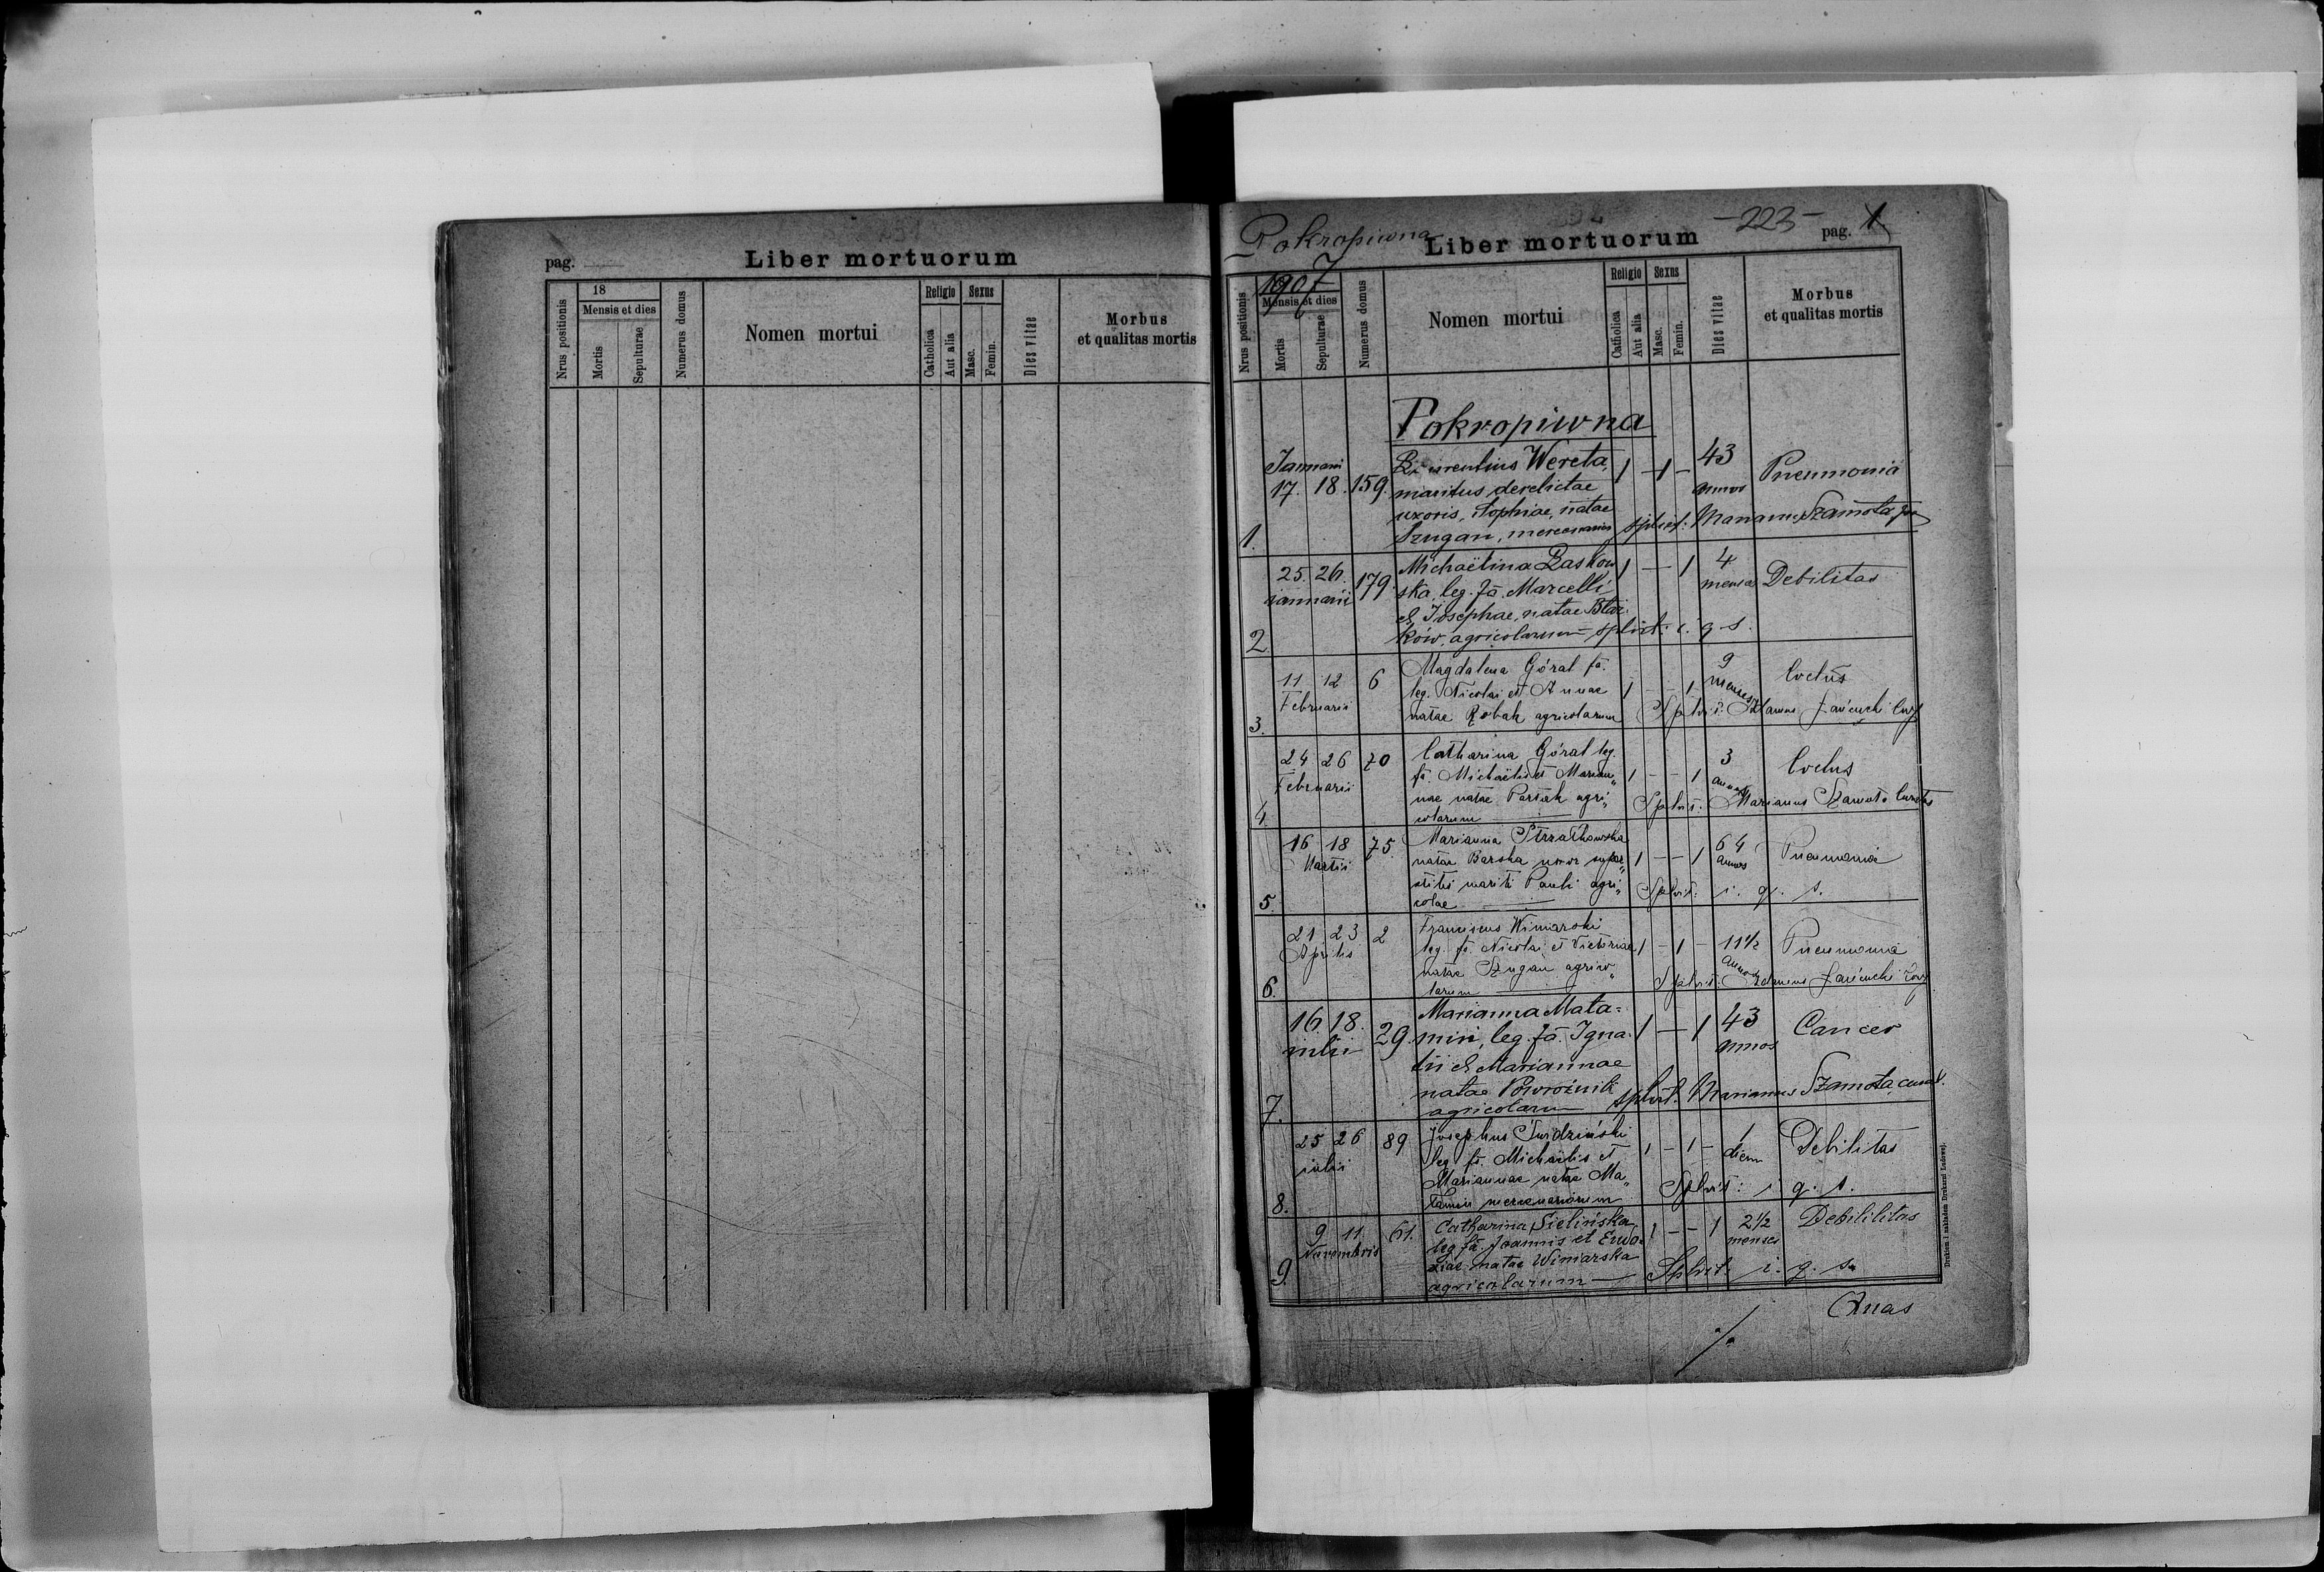 pag.
Liber mortuorum
Nrus positionis
18
Mensis et dies
Mortis
Sepulturae
Numerus domus
Nomen mortui
Religio
Catholica
Aut alia
Sexus
Masc.
Femin.
Dies vitae
Morbus
et qualitas mortis
Pokropiwna
Liber mortuorum
-223-
pag. 1
Nrus positionis
1907
Mensis et dies
Mortis
Sepulturae
Numerus domus
Nomen mortui
Religio
Catholica
Aut alia
Sexus
Masc.
Femin.
Dies vitae
Morbus
et qualitas mortis
Pokropiwna
Januarii
17. 18. 159. Wereta 1 - 1 - 43 Pneumonia
maritus derelictae annos
uxoris, Sophiae, natae
1. Szugan, mercenarius splvit: Marianus Szamota
25. 26. 179. Michaëlina Laskow 1 - - 1 4 Debilitas
januarii ska, leg. fa. Marcelli menses
et Josephae, natae
2 ków, agricolarum splvit: i. q. s.
11 12 6 Magdalena Góral fa. 9 Coctus
Februarii leg. Nicolai et Annae 1 - - 1 menses
3. natae Robak agricolarum Splvit:
24 26 70 Catharina Góral leg. 3 Coctus
Februarii fa. Michaëlis et Marian„ 1 - - 1 annos
nae natae agri„ Splvit: Marianus Szamota
4. colarum
16 18 75. Marianna 64 Pneumonia
Martii natae Barska uxor super„ 1 - - 1 annos
stitis mariti Pauli agri„ Splvit: i. q. s.
5. colae
21 23 2 Franciscus Winiarski
Aprilis leg. fs. Nicolai et Victoriae 1 - 1 - 11½ Pneumonia
natae Szugan agrico„ annos
6. larum Splvit:
16. 18. 29. Marianna Mata= 1 - - 1 43 Cancer
julii min, leg. fa. Igna= annos
tii et Mariannae
natae Powroźnik
7. agricolarum splvit: Marianus Szamota,
25 26 89 Josephus 1 - 1 - 1 Debilitas
julii leg fs. Michaëlis et diem
Mariannae natae Ma„ Splvit: i. q. s.
8. tamin mercenariorum
9 11 61. Catharina Sielińska 1 - - 1 2½ Debililitas
Novembris leg fa. Joannis et Eudo= menses
xiae natae Winiarska
9. agricolarum Splvit: i. q. s.
./.
Drukiem i nakładem Drukarni Ludowej.